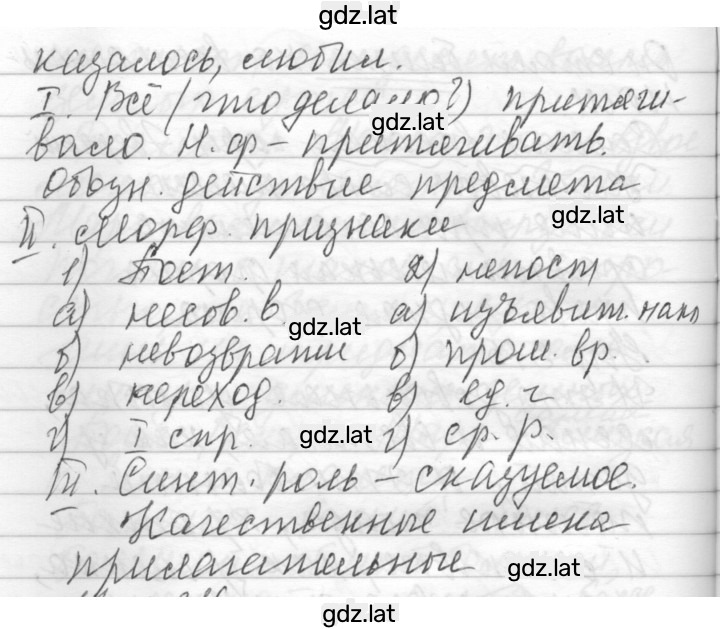 gdz.lat
казалось, любил.
I. Всё (что делало?) притяги-
вало. Н.ф - притягивать.
gdz.lat
Обозн. действие предмета
gdz.lat
II. Морф. признаки
1) Пост. 2) непост
а) несов. в. а) изъявит. накл
gdz.lat
б) невозвратн б) прош. вр.
в) переход. в) ед. ч
г) I спр. г) ср. р.
gdz.lat
III. Синт. роль - сказуемое.
Качественные имена
прилагательные
gdz.lat
gdz.lat